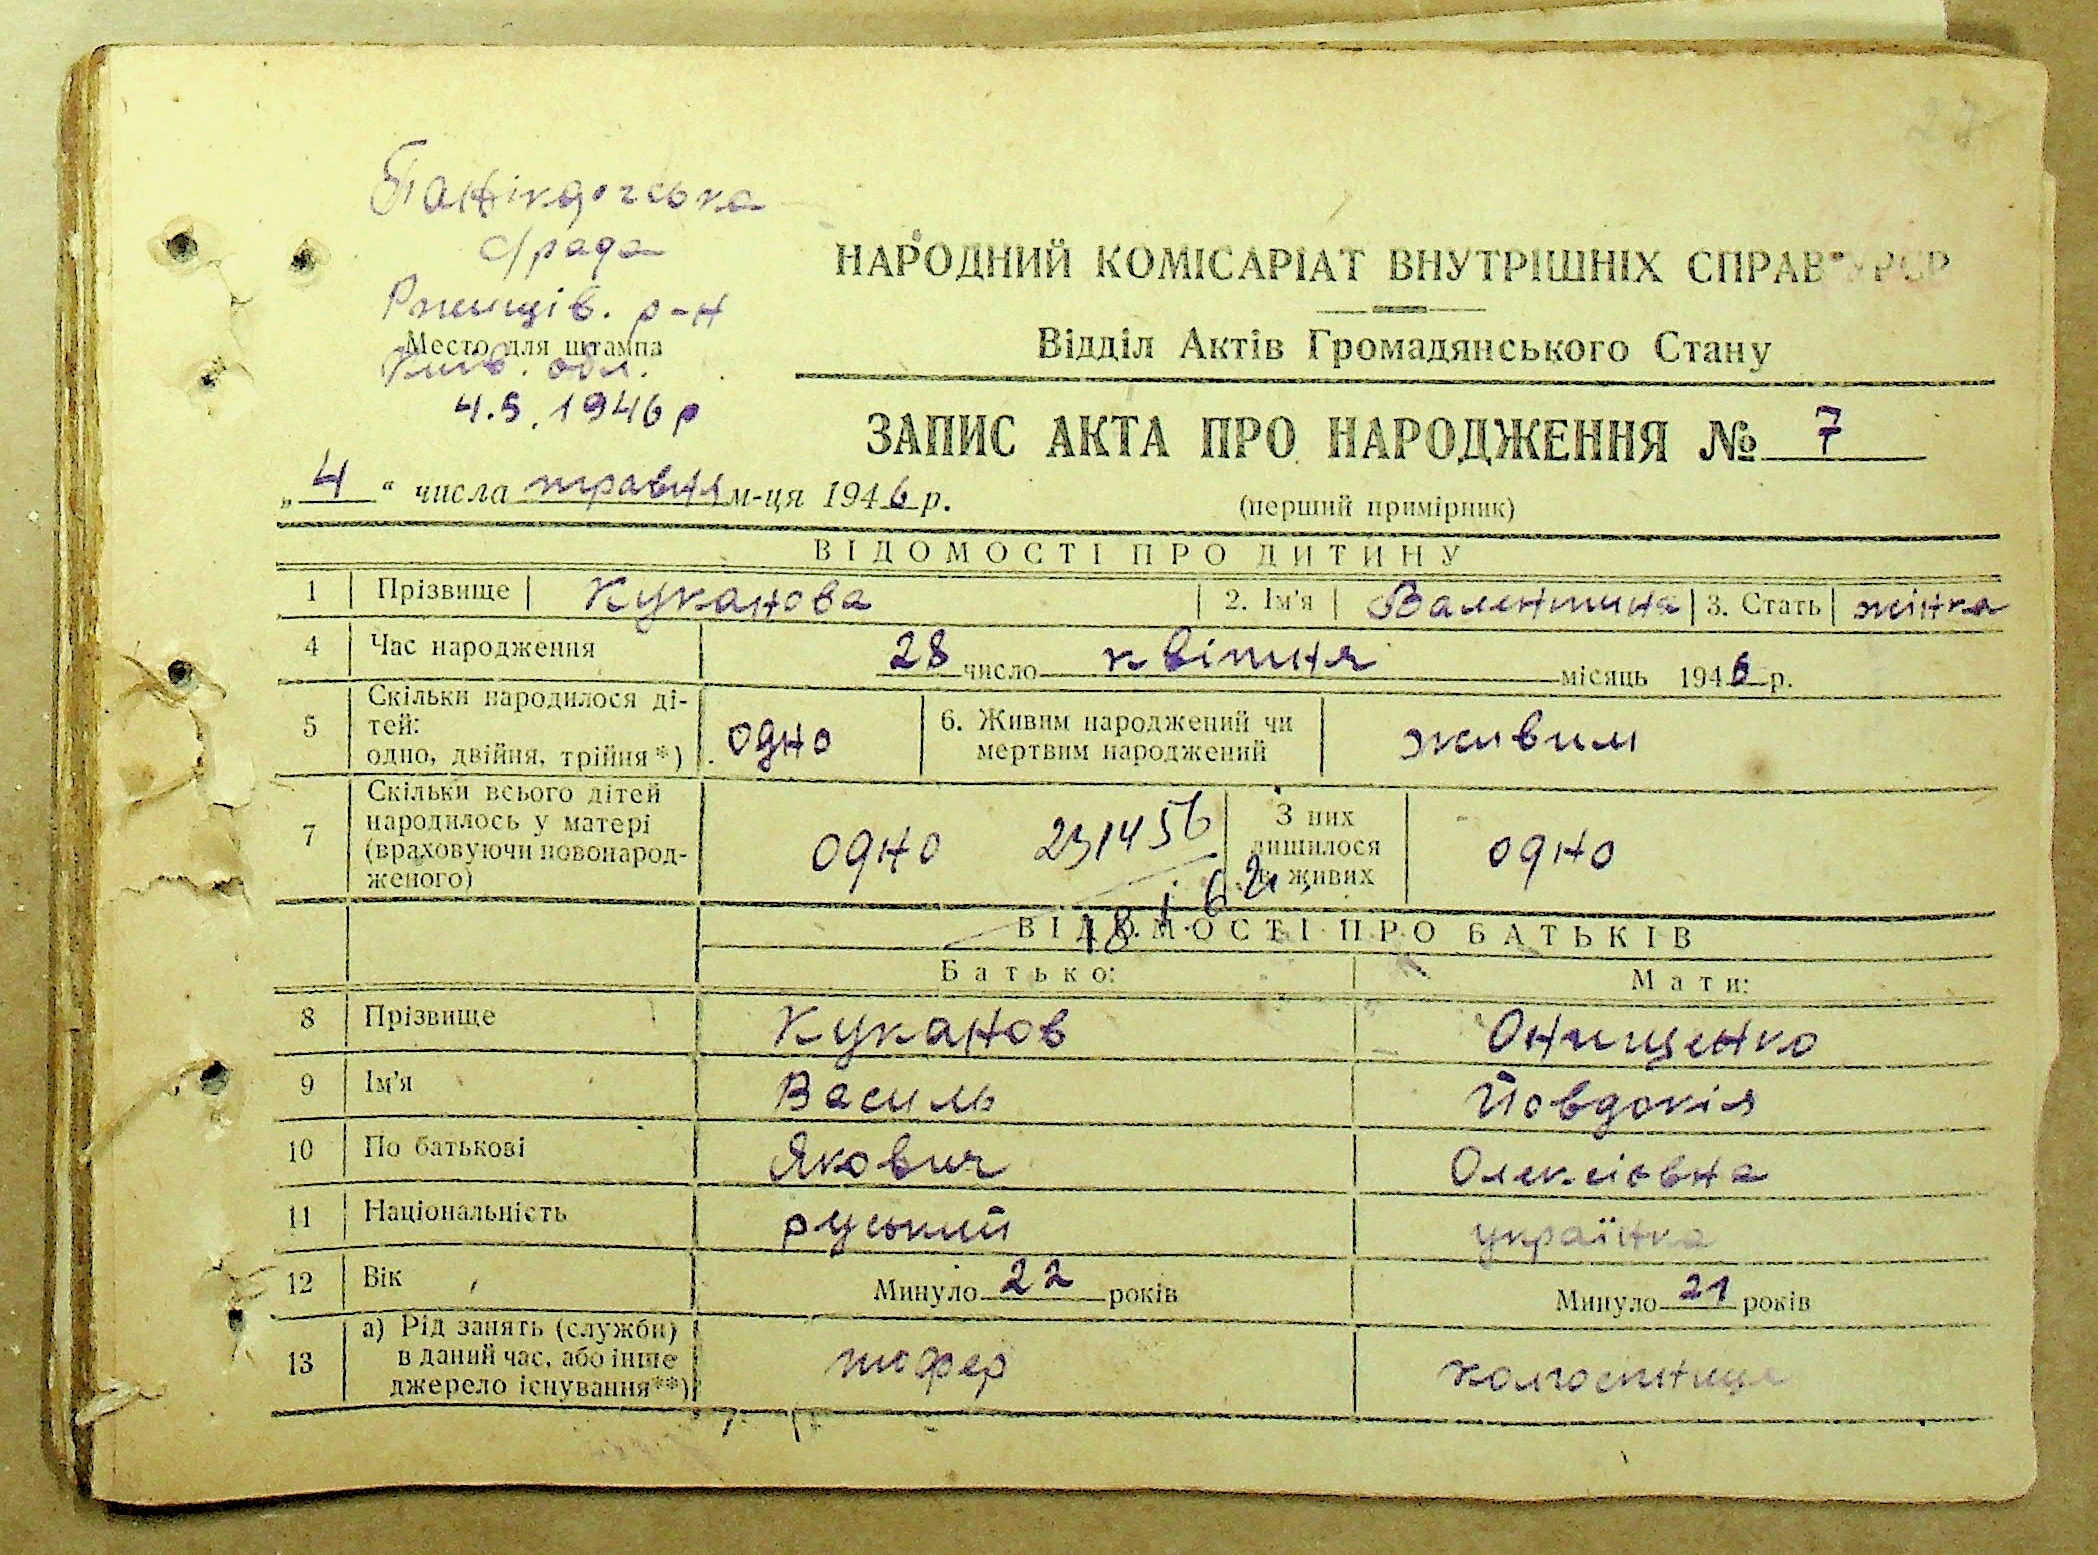 Панікарчська
с/рада
Ржищів. р-н
Место для штампа
Київ. обл.
4.5.1946 р
НАРОДНИЙ КОМІСАРІАТ ВНУТРІШНІХ СПРАВ УРСР
Відділ Актів Громадянського Стану
ЗАПИС АКТА ПРО НАРОДЖЕННЯ № 7
„4“ числа травня м-ця 1946 р.
(перший примірник)
ВІДОМОСТІ ПРО ДИТИНУ
1 Прізвище Куканова 2. Ім'я Валентина 3. Стать жінка
4 Час народження 28 число квітня місяць 1946 р.
5 Скільки народилося ді-
тей:
одно, двійня, трійня*) одно 6. Живим народжений чи
мертвим народжений живим
7 Скільки всього дітей
народилось у матері
(враховуючи новонарод-
женого) одно 231456 З них
лишилося
в живих одно
18.1.62
ВІДОМОСТІ ПРО БАТЬКІВ
Батько: Мати:
8 Прізвище Куканов Онищенко
9 Ім'я Василь Йовдокія
10 По батькові Якович Олексіівна
11 Національність руський українка
12 Вік Минуло 22 років Минуло 21 років
13 а) Рід занять (служби)
в даний час, або інше
джерело існування**) шофер колгоспниця